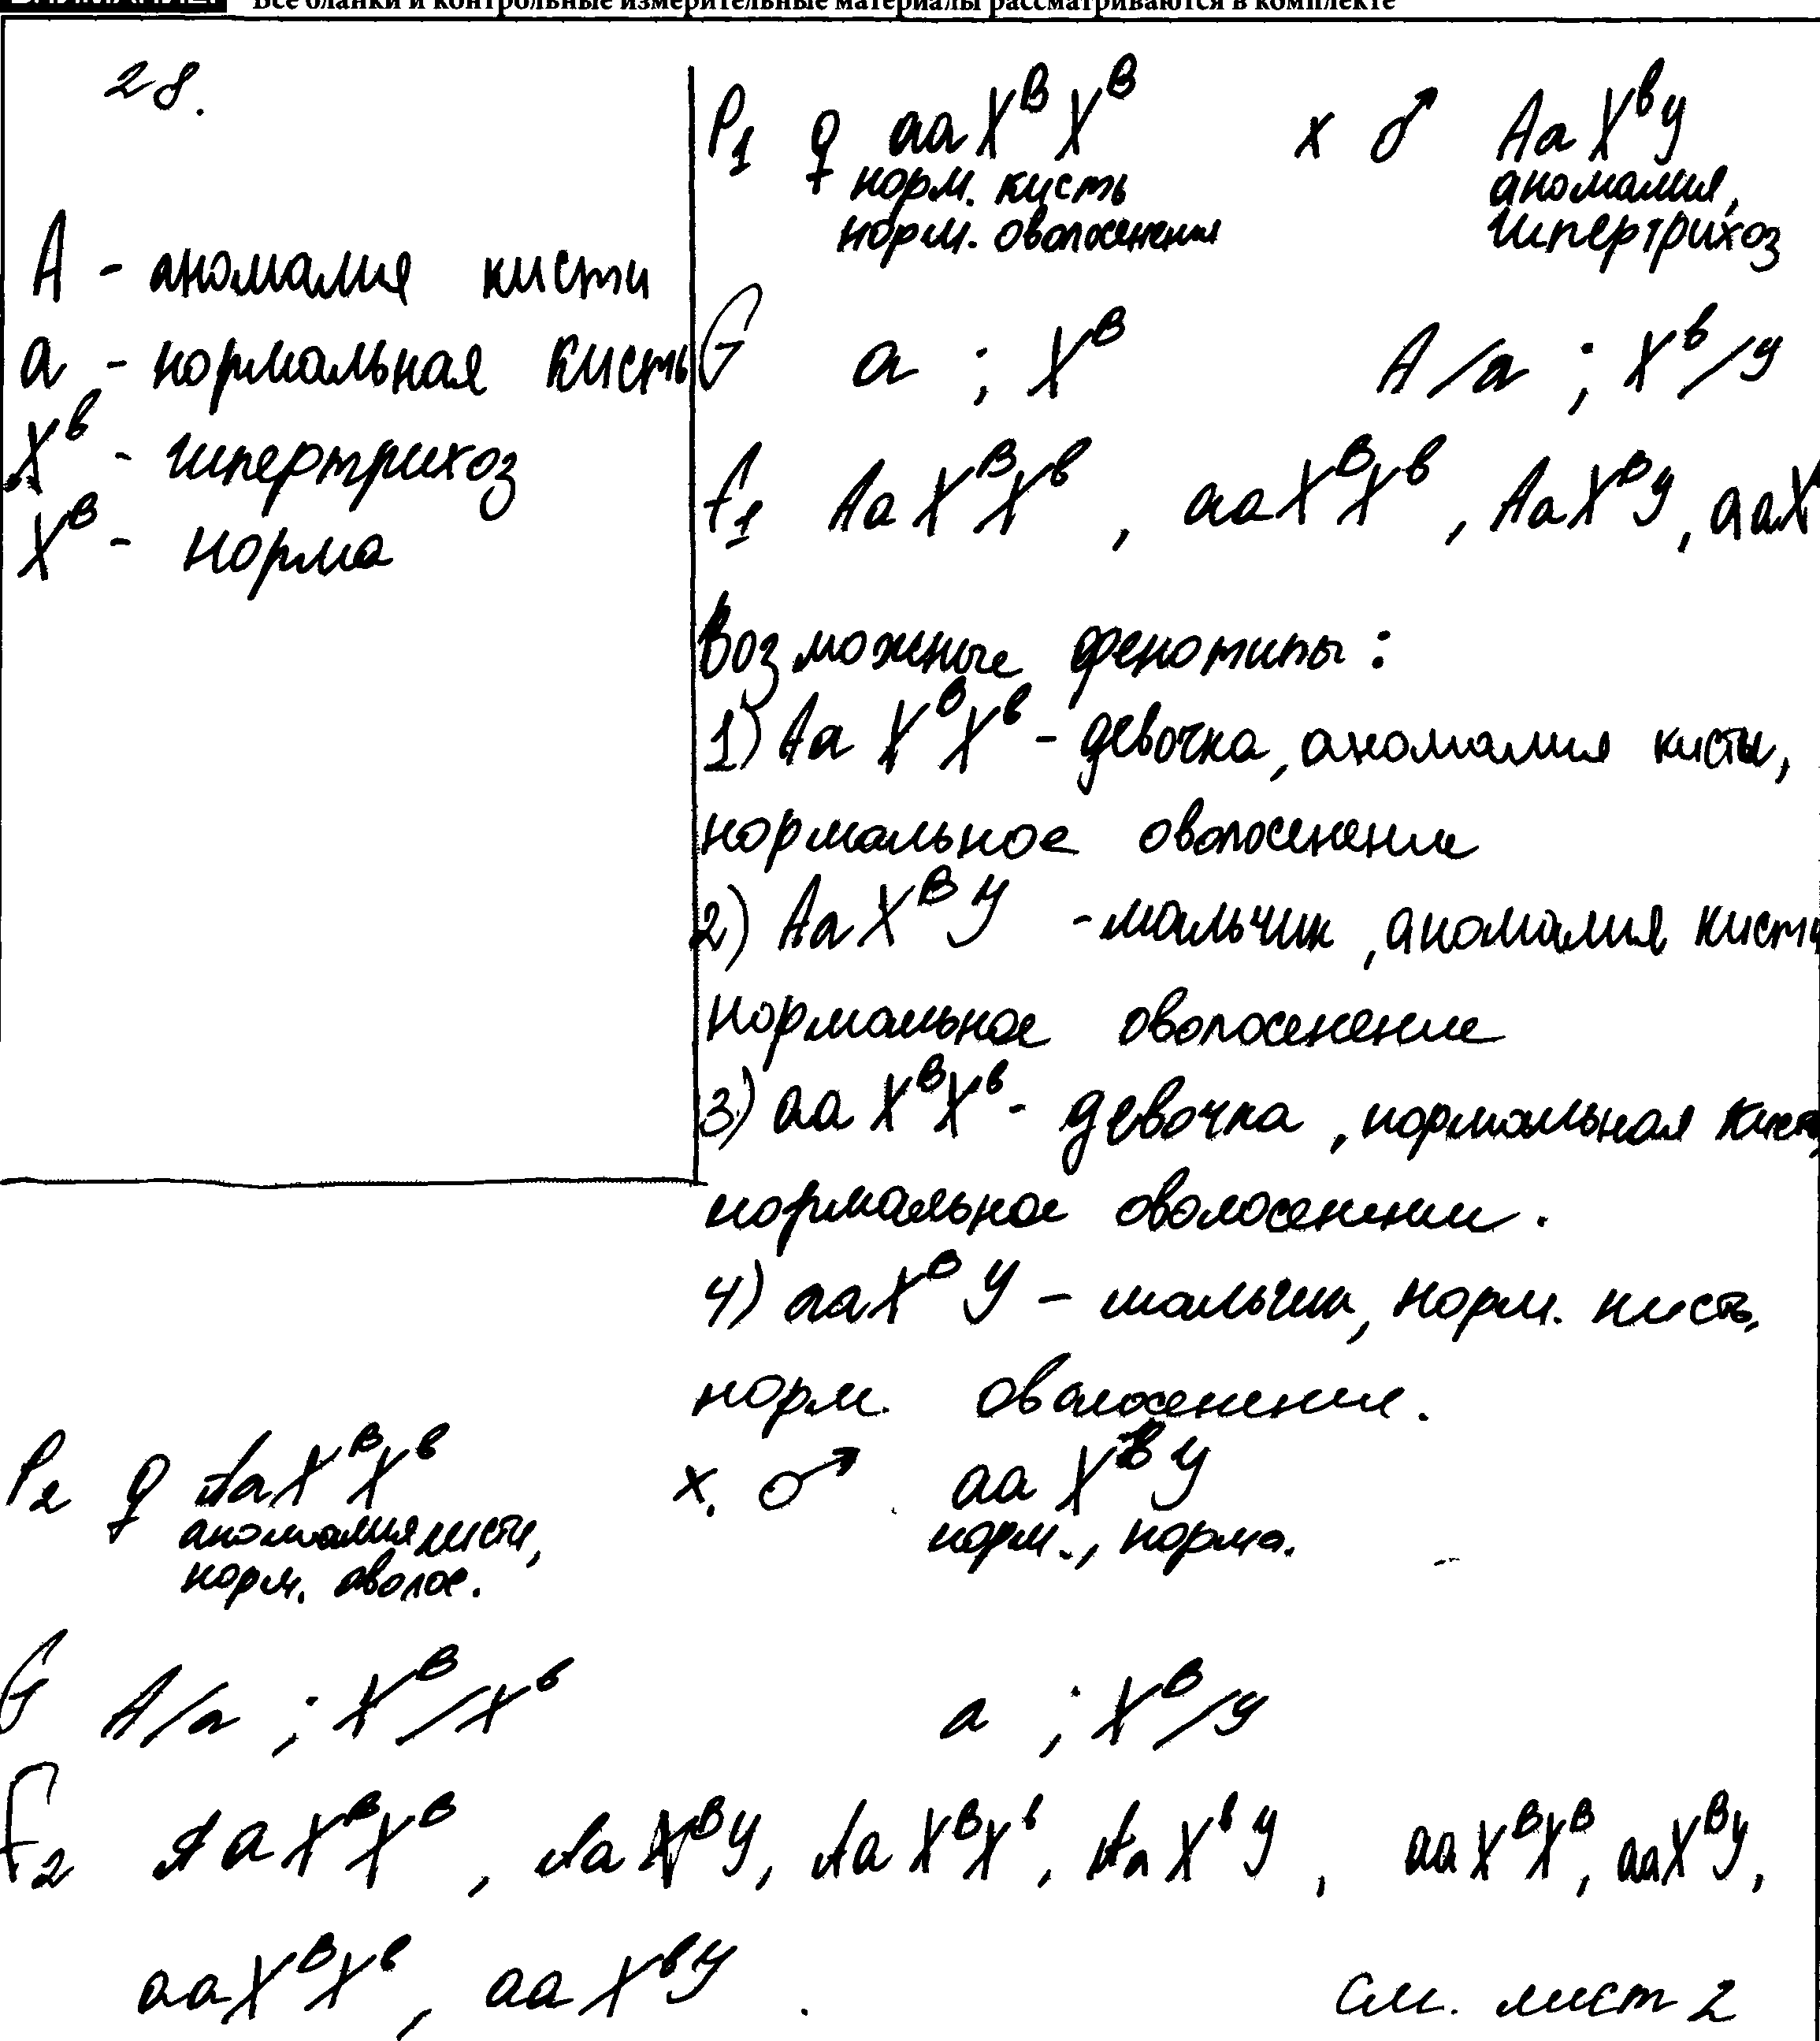 Все бланки и контрольные измерительные материалы рассматриваются в комплекте
28.
A - аномалия кисти
a - нормальная кисть
Xᵇ - гипертрихоз
Xᴮ - норма
P₁ ♀ aaXᴮXᴮ x ♂ AaXᵇY
норм. кисть аномалия,
норм. оволосенения гипертрихоз
G a ; Xᴮ A/a ; Xᵇ/Y
F₁ AaXᴮXᵇ, aaXᴮXᵇ, AaXᴮY, aaX
Возможные фенотипы:
1) Aa XᴮXᵇ - девочка, аномалия кисты,
нормальное оволосенение
2) AaXᴮY - мальчик, аномалия кисти
нормальное оволосенение
3) aa XᴮXᵇ - девочка, нормальная кисть,
нормальное оволосенении.
4) aaXᴮY - мальчик, норм. кисть,
норм. оволосенение.
P₂ ♀ AaXᴮXᵇ x ♂ aaXᴮY
аномалия кисти, норм., норма.
норм. оволос.
G A/a ; Xᴮ/Xᵇ a ; Xᴮ/Y
F₂ AaXᴮXᴮ, AaXᴮY, AaXᴮXᵇ, AaXᵇY, aaXᴮXᴮ, aaXᴮY,
aaXᴮXᵇ, aaXᵇY.
См. лист 2